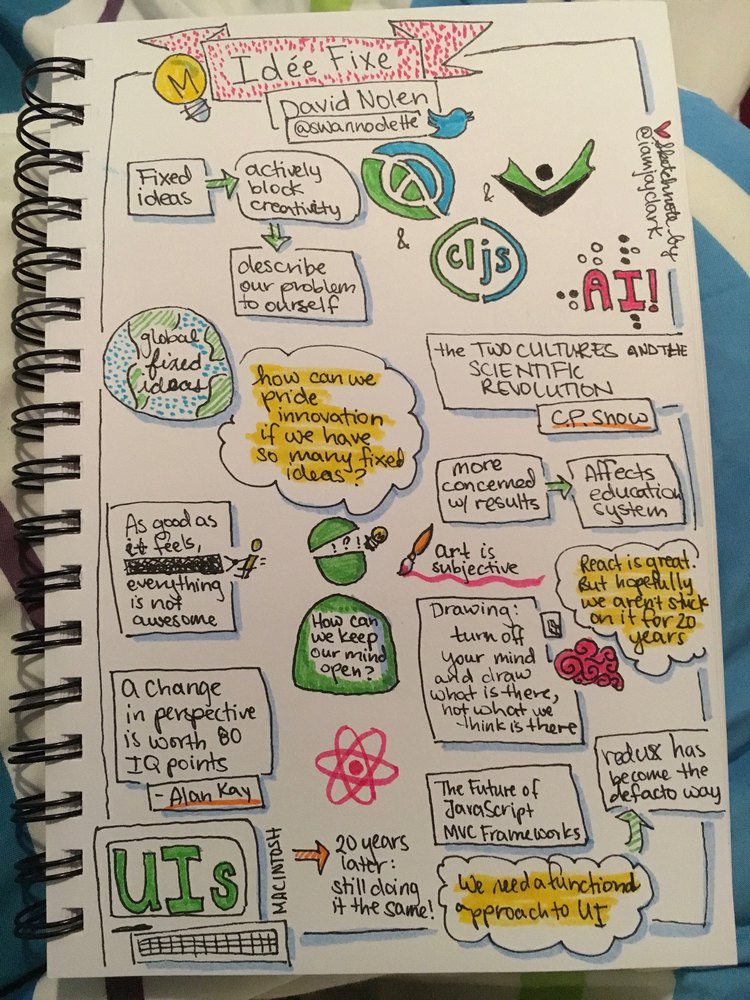 Idée Fixe
David Nolen
@swannodette
sketchnote by
@iamjayclark
Fixed
ideas
actively
block
creativity
&
&
cljs
describe
our problem
to ourself
AI!
global
fixed
ideas
how can we
pride
innovation
if we have
so many fixed
ideas?
the TWO CULTURES AND THE
SCIENTIFIC
REVOLUTION
C.P. Snow
more
concerned
w/ results
Affects
education
system
As good as
it feels,
everything
is not
awesome
?!?!
art is
subjective
React is great.
But hopefully
we aren't stuck
on it for 20
years
How can
we keep
our mind
open?
Drawing:
turn off
your mind
and draw
what is there,
not what we
think is there
a change
in perspective
is worth 80
IQ points
- Alan Kay
The Future of
JavaScript
MVC Frameworks
redux has
become the
defacto way
UIs
MACINTOSH
20 years
later:
still doing
it the same!
We need a functional
approach to UI